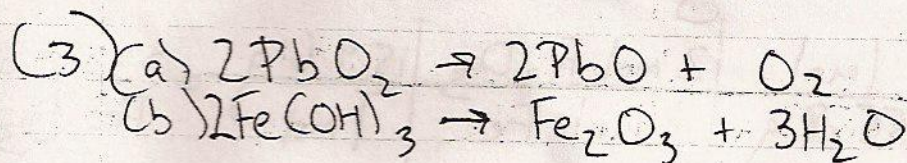 (3)(a) 2PbO₂ → 2PbO + O₂
(b) 2Fe(OH)₃ → Fe₂O₃ + 3H₂O